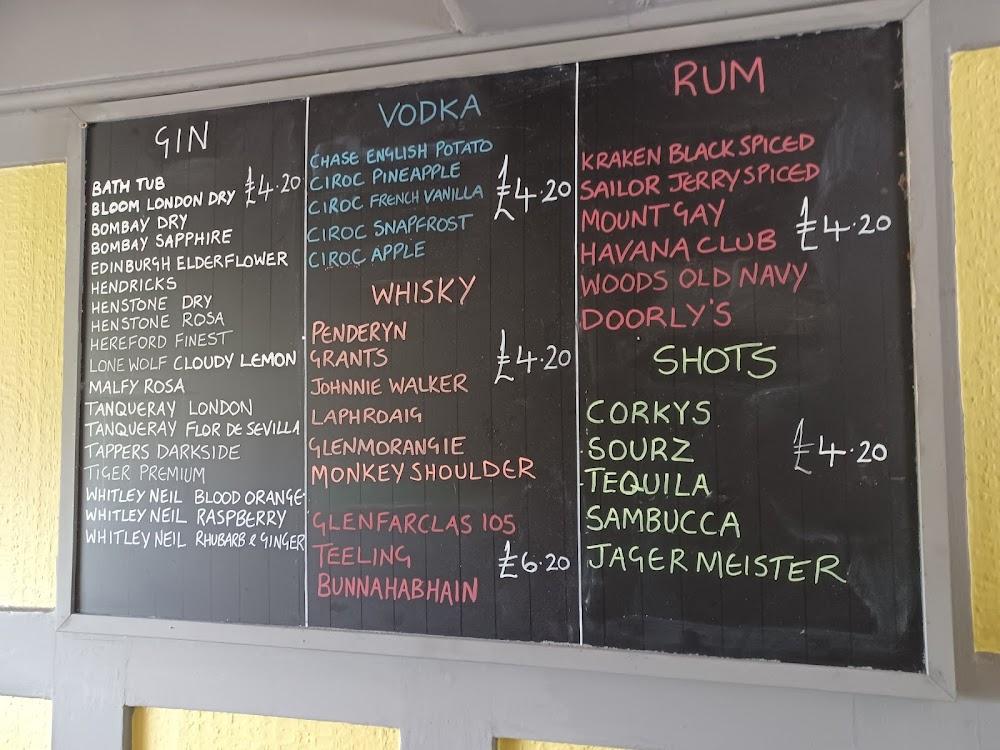 GIN
BATH TUB
BLOOM LONDON DRY £4.20
BOMBAY DRY
BOMBAY SAPPHIRE
EDINBURGH ELDERFLOWER
HENDRICKS
HENSTONE DRY
HENSTONE ROSA
HEREFORD FINEST
LONE WOLF CLOUDY LEMON
MALFY ROSA
TANQUERAY LONDON
TANQUERAY FLOR DE SEVILLA
TAPPERS DARKSIDE
TIGER PREMIUM
WHITLEY NEIL BLOOD ORANGE
WHITLEY NEIL RASPBERRY
WHITLEY NEIL RHUBARB & GINGER
VODKA
CHASE ENGLISH POTATO
CIROC PINEAPPLE
CIROC FRENCH VANILLA £4.20
CIROC SNAPFROST
CIROC APPLE
WHISKY
PENDERYN
GRANTS £4.20
JOHNNIE WALKER
LAPHROAIG
GLENMORANGIE
MONKEY SHOULDER
GLENFARCLAS 105
TEELING £6.20
BUNNAHABHAIN
RUM
KRAKEN BLACK SPICED
SAILOR JERRY SPICED
MOUNT GAY £4.20
HAVANA CLUB
WOODS OLD NAVY
DOORLY'S
SHOTS
CORKYS
SOURZ £4.20
TEQUILA
SAMBUCCA
JAGER MEISTER